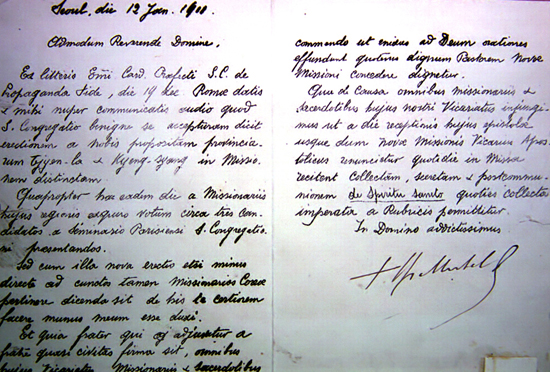 Seoul, die 12 Jan. 1911.
Admodum Reverende Domine,
Ex litteris Emi Card. Præfecti S.C. de
Propaganda Fide, die 19 dec. Romæ datis
& mihi nuper communicatis audio quod
S. Congregatio benigne se accepturam dicit
erectionem a nobis propositam provincia-
rum Tjyen-la & Kyeng-syang in Missio-
nem distinctam.
Quapropter hac eadem die a Missionariis
hujus regionis exquiro votum circa tres can-
didatos a Seminario Parisiensi S. Congregatio-
ni præsentandos.
Sed cum illa nova erectio etsi minus
directe ad cunctos tamen Missionarios Coreæ
pertinere dicenda sit de his te certiorem
facere munus meum esse duxi.
Et quia frater qui adjuvatur a
fratre quasi civitas firma sit, omnibus
hujus Vicariatus Missionariis & sacerdotibus
commendo ut enixas ad Deum orationes
effundant quatenus dignum Pastorem Novæ
Missioni concedere dignetur.
Qua de Causa omnibus missionariis &
sacerdotibus hujus nostri Vicariatus injungi-
mus ut a die receptionis hujus epistolæ
usque dum novæ Missionis Vicarius Apos-
tolicus renuncietur quotidie in Missa
recitent Collectam, secretam & postcommu-
nionem de Spiritu Santo quoties collecta
imperata a Rubricis permittitur.
In Domino addictissimus